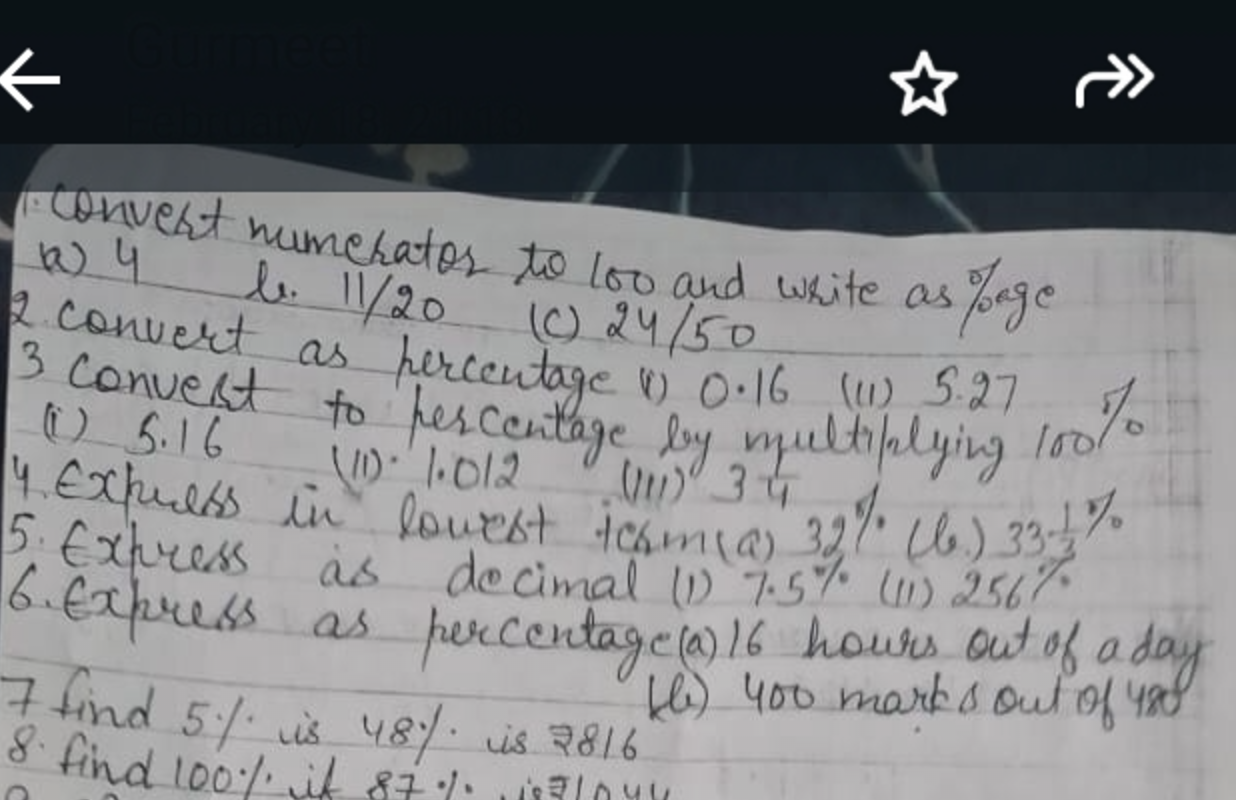 1. Convert numerator to 100 and write as %age
a) 4 b. 11/20 (C) 24/50
2. Convert as percentage (i) 0.16 (ii) 5.27
3 Convert to percentage by multiplying 100%
(i) 5.16 (ii). 1.012 (iii) 3 1/4
4. Express in lowest term (a) 32% (b.) 33 1/3 %
5. Express as decimal (i) 7.5% (ii) 256%
6. Express as percentage (a) 16 hours out of a day
(b) 400 marks out of
7 find 5% is 48% is ₹816
8. find 100% if 87% is ₹1044